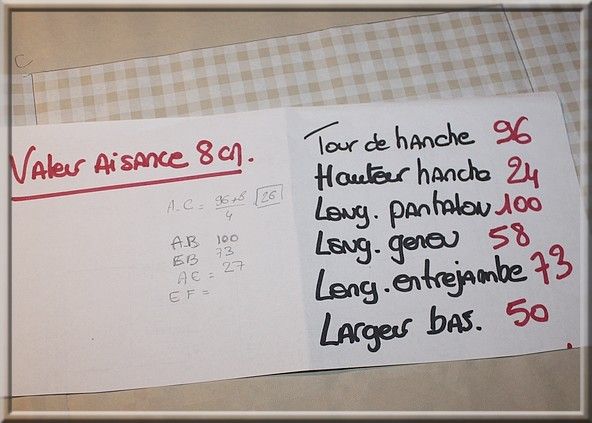 C
Valeur Aisance 8 cm.
A.C = 96+8/4 26
AB 100
EB 73
AE = 27
EF =
Tour de hanche 96
Hauteur hanche 24
Long. pantalon 100
Long. genou 58
Long. entrejambe 73
Largeur bas. 50